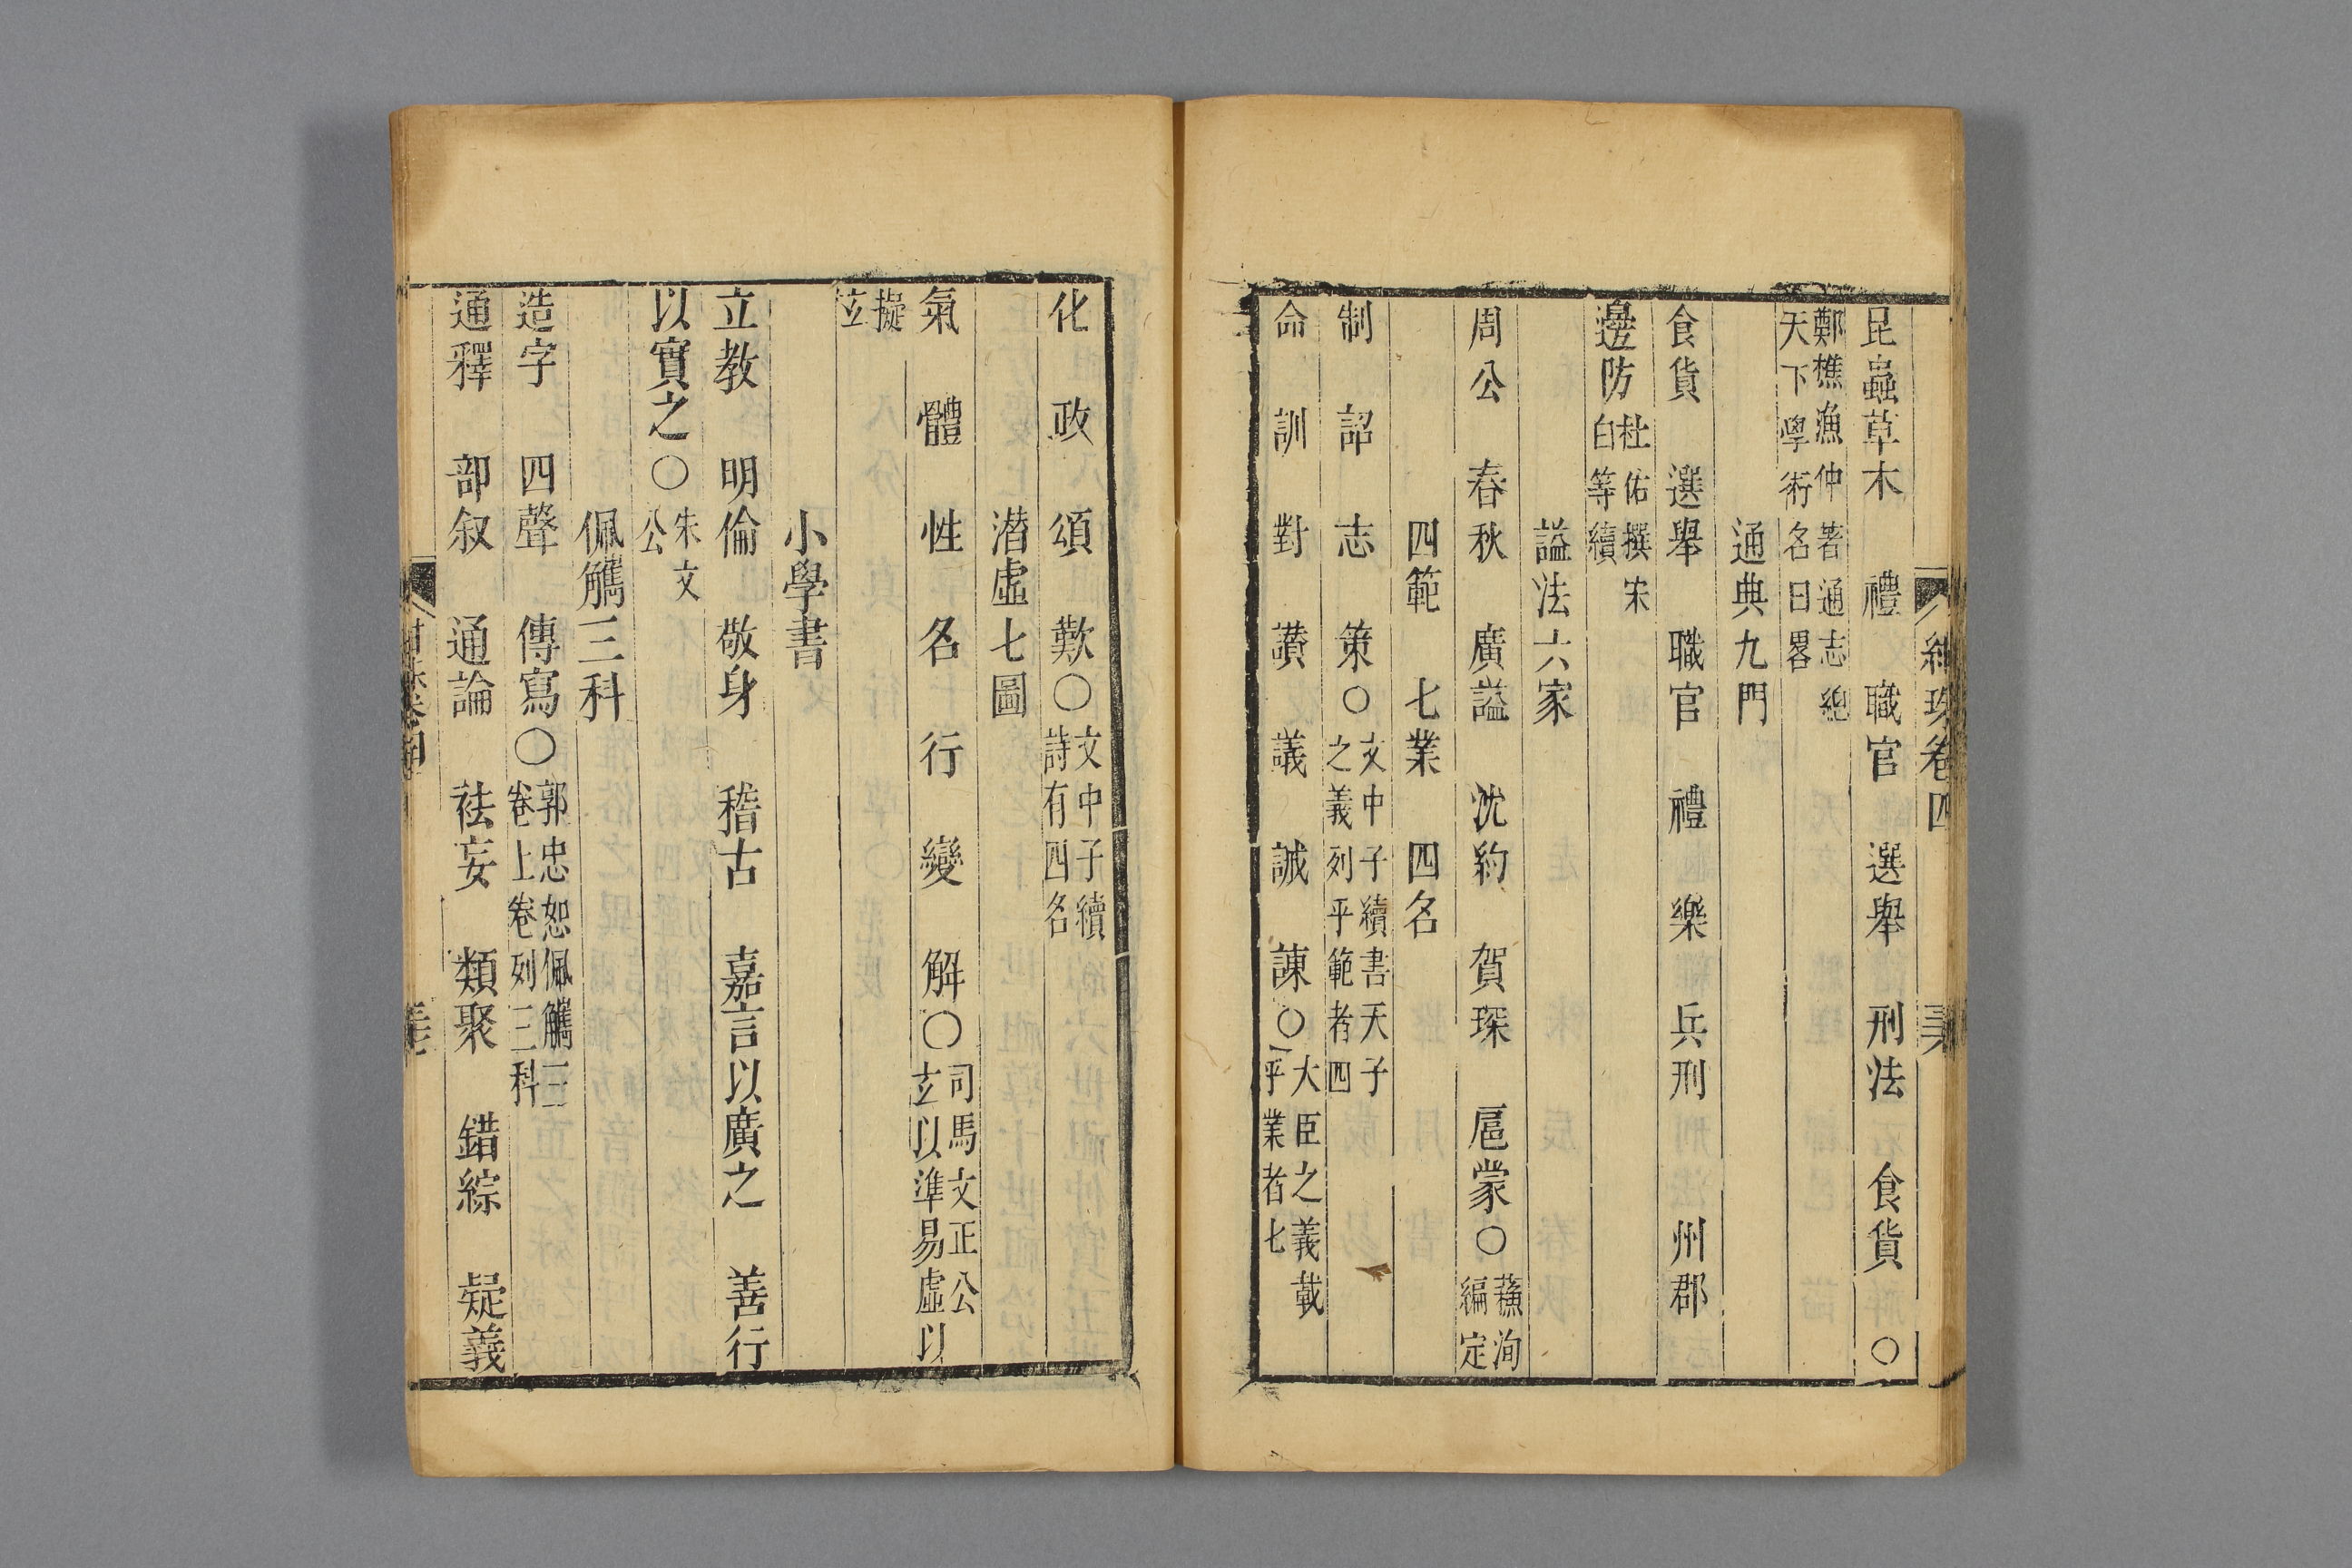 昆蟲草木 禮 職官 選舉 刑法 食貨 〇
鄭樵漁仲著通志總
天下學術名曰畧
通典九門
食貨 選舉 職官 禮 樂 兵刑 州郡
邊防 杜佑撰宋
白等續
諡法六家
周公 春秋 廣諡 沈約 賀琛 扈蒙〇 蘓洵
編定
四範 七業 四名
制 詔 志 策〇 文中子續書天子
之義列乎範者四
命 訓 對 讃 議 誡 諫〇 大臣之義載
乎業者七
化 政 頌 歎〇 文中子續
詩有四名
潜虛七圖
氣 體 性 名 行 變 解〇 司馬文正公
玄以準易虛以
擬
玄
小學書
立教 明倫 敬身 稽古 嘉言以廣之 善行
以實之〇 朱文
公
佩觿三科
造字 四聲 傳寫〇 郭忠恕佩觿三
卷上卷列三科
通釋 部叙 通論 祛妄 類聚 錯綜 疑義